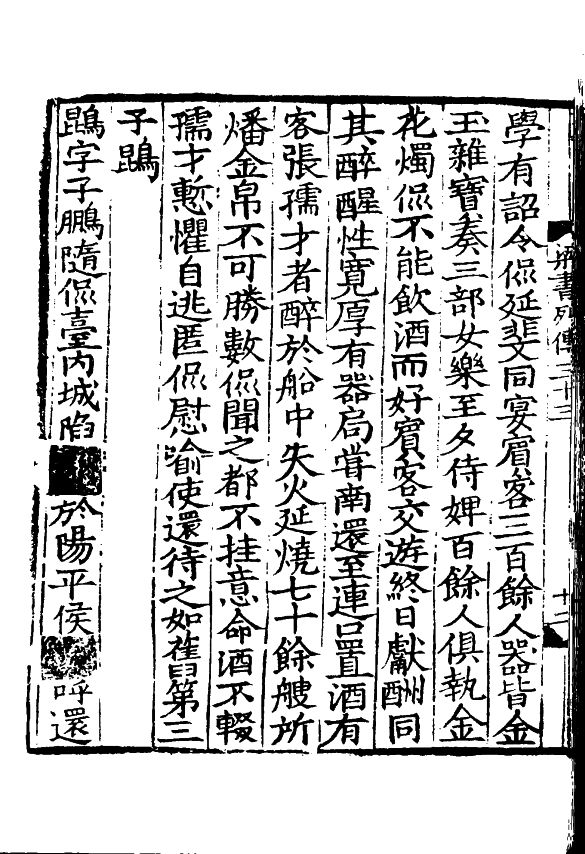 梁書列傳三十三
十二
學有詔令侃延斐同宴賓客三百餘人器皆金
玉雜寶奏三部女樂至夕侍婢百餘人俱執金
花燭侃不能飲酒而好賓客交遊終日獻酬同
其醉醒性寬厚有器局嘗南還至連口置酒有
客張孺才者醉於船中失火延燒七十餘艘所
燔金帛不可勝數侃聞之都不挂意命酒不輟
孺才慙懼自逃匿侃慰喻使還待之如舊第三
子鵾
鵾字子鵬隨侃臺内城陷
於陽平侯
呼還